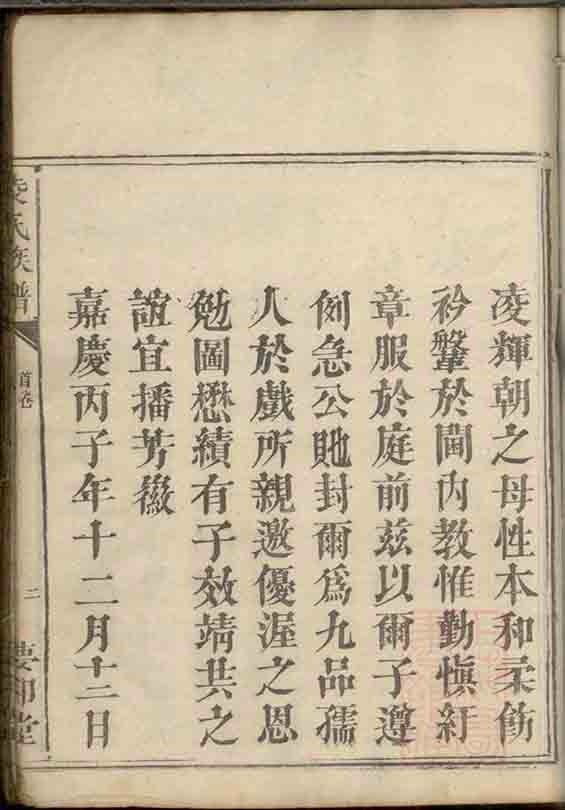 凌輝朝之母性本和柔飭
衿鞶於閫內教惟勤慎紆
章服於庭前兹以爾子遵
例急公貤封爾爲九品孺
人於戲所親邀優渥之恩
勉圖懋績有子效靖共之
誼宜播芳徽
嘉慶丙子年十二月十二日
凌氏族譜
首卷
二